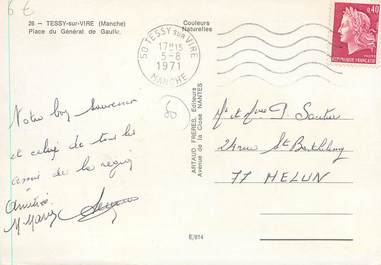 6 €
26 - TESSY-sur-VIRE (Manche)
Place du Général de Gaulle.
Couleurs
Naturelles
50 TESSY sur VIRE
17H15
5-8
1971
MANCHE
0,40
REPUBLIQUE FRANCAISE
50
Notre bon souvenir
et celui de tous les
amis de la région
Amitiés
ARTAUD FRERES, Editeurs
Avenue de la Close NANTES
Mr et Mme P.
24 rue St Barthélemy
77 MELUN
E/614